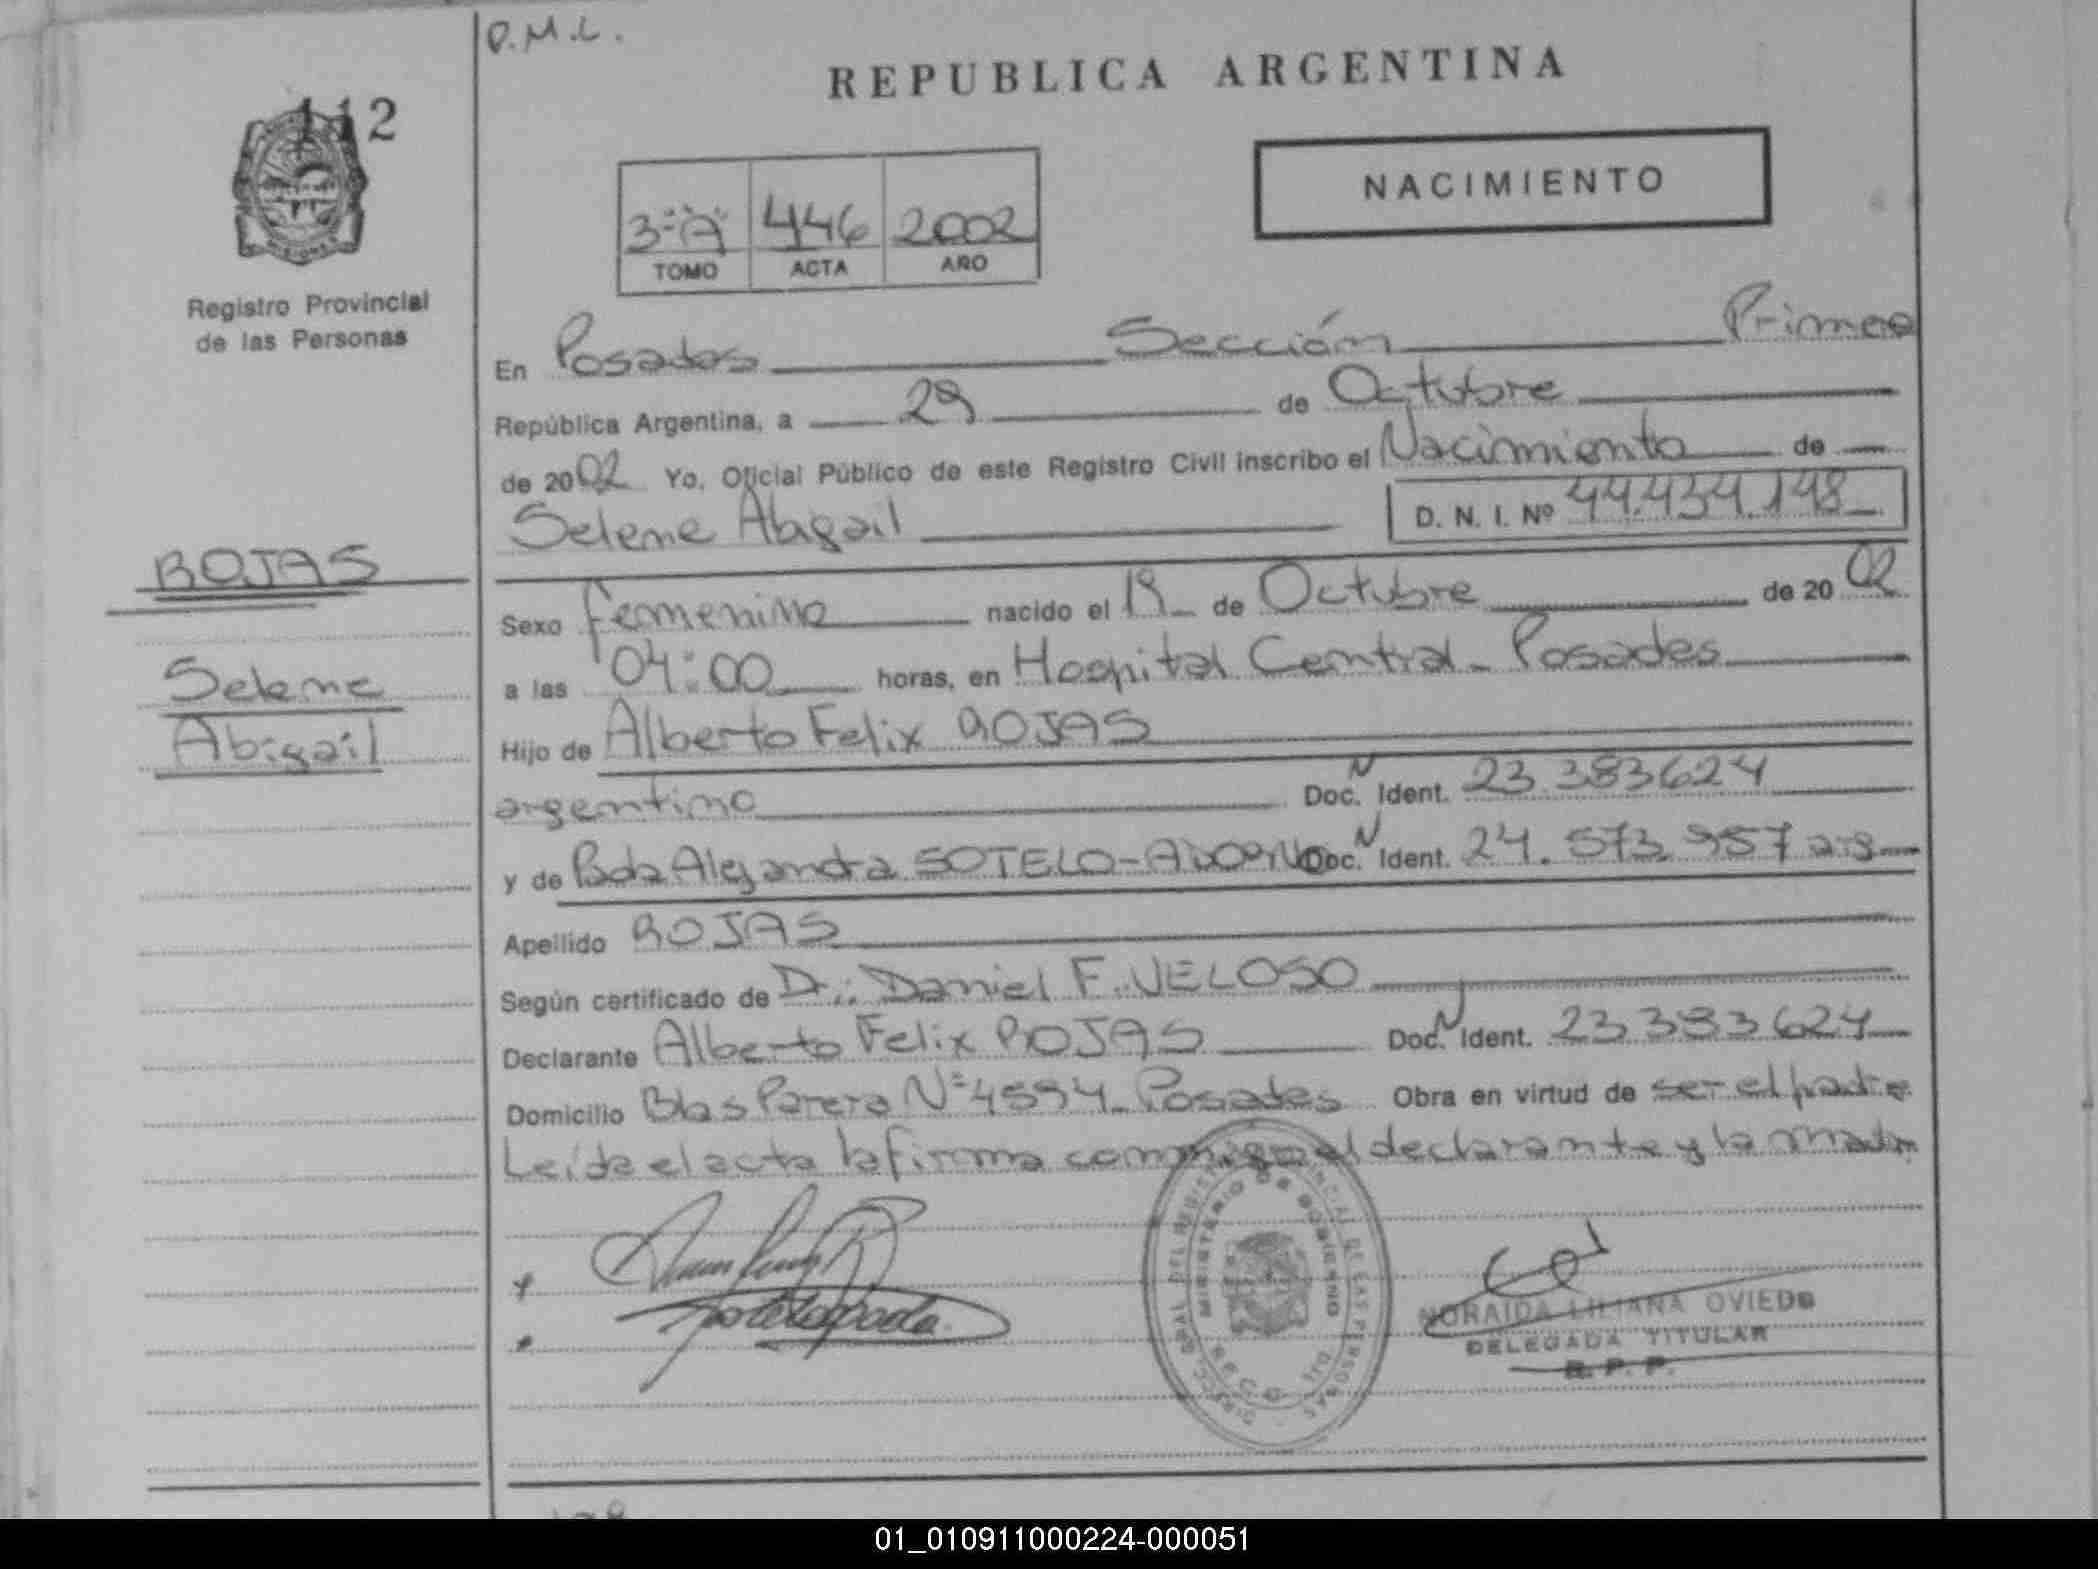 P.M.L.
REPUBLICA ARGENTINA
112
NACIMIENTO
3-"A" 446 2002
TOMO ACTA AÑO
Registro Provincial
de las Personas
MISIONES
En Posadas Sección Primera
República Argentina, a 29 de Octubre
de 2002 Yo, Oficial Público de este Registro Civil inscribo el Nacimiento de
Selene Abigail D. N. I. Nº 44.434.148
ROJAS
Selene
Abigail
Sexo femenino nacido el 19 de Octubre de 2002
a las 04:00 horas, en Hospital Central - Posadas
Hijo de Alberto Felix ROJAS
argentino Doc. N Ident. 23.383624
y de Alejandra SOTELO- Doc. N Ident. 24.573.957 arg
Apellido ROJAS
Según certificado de Dr.: Daniel F. VELOSO
Declarante Alberto Felix ROJAS Doc. N Ident. 23383624
Domicilio Blas Parera Nº 4594 - Posadas Obra en virtud de ser el padre
Leída el acta la firma conmigo el declarante y la madre
MINISTERIO DE GOBIERNO
NORAIDA LILIANA OVIEDO
DELEGADA TITULAR
R. P. P.
01_010911000224-000051